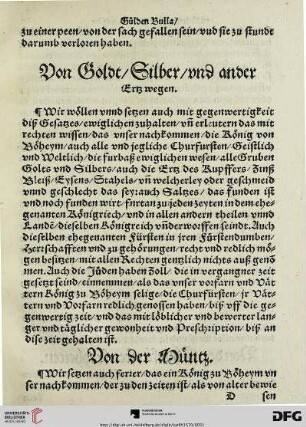 Gülden Bulla/
zu einer peen/ von der sach gefallen sein/ vnd sie zu stunde
darumb verloren haben.
Von Goldt/ Silber/ vnd ander
Ertz wegen.
¶ Wir wöllen vnnd setzen auch mit gegenwertigkeit
diß Gesatzes/ ewiglichen zuhalten/ vñ erleutern das mit
rechten wissen/ das vnser nachkommen/ die König von
Böheym/ auch alle vnd jegliche Churfürsten/ Geistlich
vnd Weltlich/ die fürbaß ewiglichen wesen/ alle Gruben
Golts vnd Silbers/ auch die Ertz des Kupffers/ Zinß
Bleiß/ Eysens/ Stahels/ vñ welcherley oder geschmeid
vnnd geschlecht das sey: auch Saltzes/ das funden ist
vnd noch funden wirt/ in den zeyten in dem ehe-
genanten Königriech/ vnd in allen andern theilen vnnd
Lande/ dieselben Königreich vnderworffen seindt. Auch
dieselben ehegenanten Fürsten in jren Fürstendumben/
Herrschafften vnd zu gehörungen/ recht vnd redlich mö
gen besitzen/ mit allen Rechten gentzlich nichts auß genõ
men. Auch die Jüden haben Zoll/ die in vergangner zeit
gesetzt seind/ einnemmen/ als das vnser vorfarn vnd Vät
tern König zu Böheym selige/ die Churfürsten/ jr Vät-
tern vnd Vorfarn redlich genossen haben/ biß vff die ge-
genwertig zeit/ vnd das mit löblicher vnd bewerter lan-
ger vnd täglicher gewonheit vnd Prescription/ biß an
dise zeit gehalten ist.
Von der Müntz.
¶ Wir setzen auch ferrer/ das ein König zu Böheym vn
ser nachkommen/ der zu den zeiten ist/ als von alter bewie
D
sen
UNIVERSITÄTS-
BIBLIOTHEK
HEIDELBERG
DFG